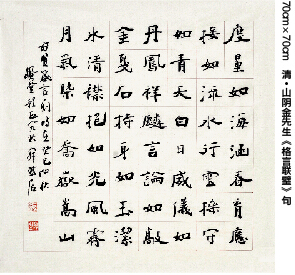 70cm×70cm 清·山阴金先生《格言联璧》句
度量如海涵春育應
接如流水行雲操守
如青天白日威儀如
丹鳳祥麟言論如敲
金戛石持身如玉潔
氷清襟抱如光風霽
月氣槩如喬嶽嵩山